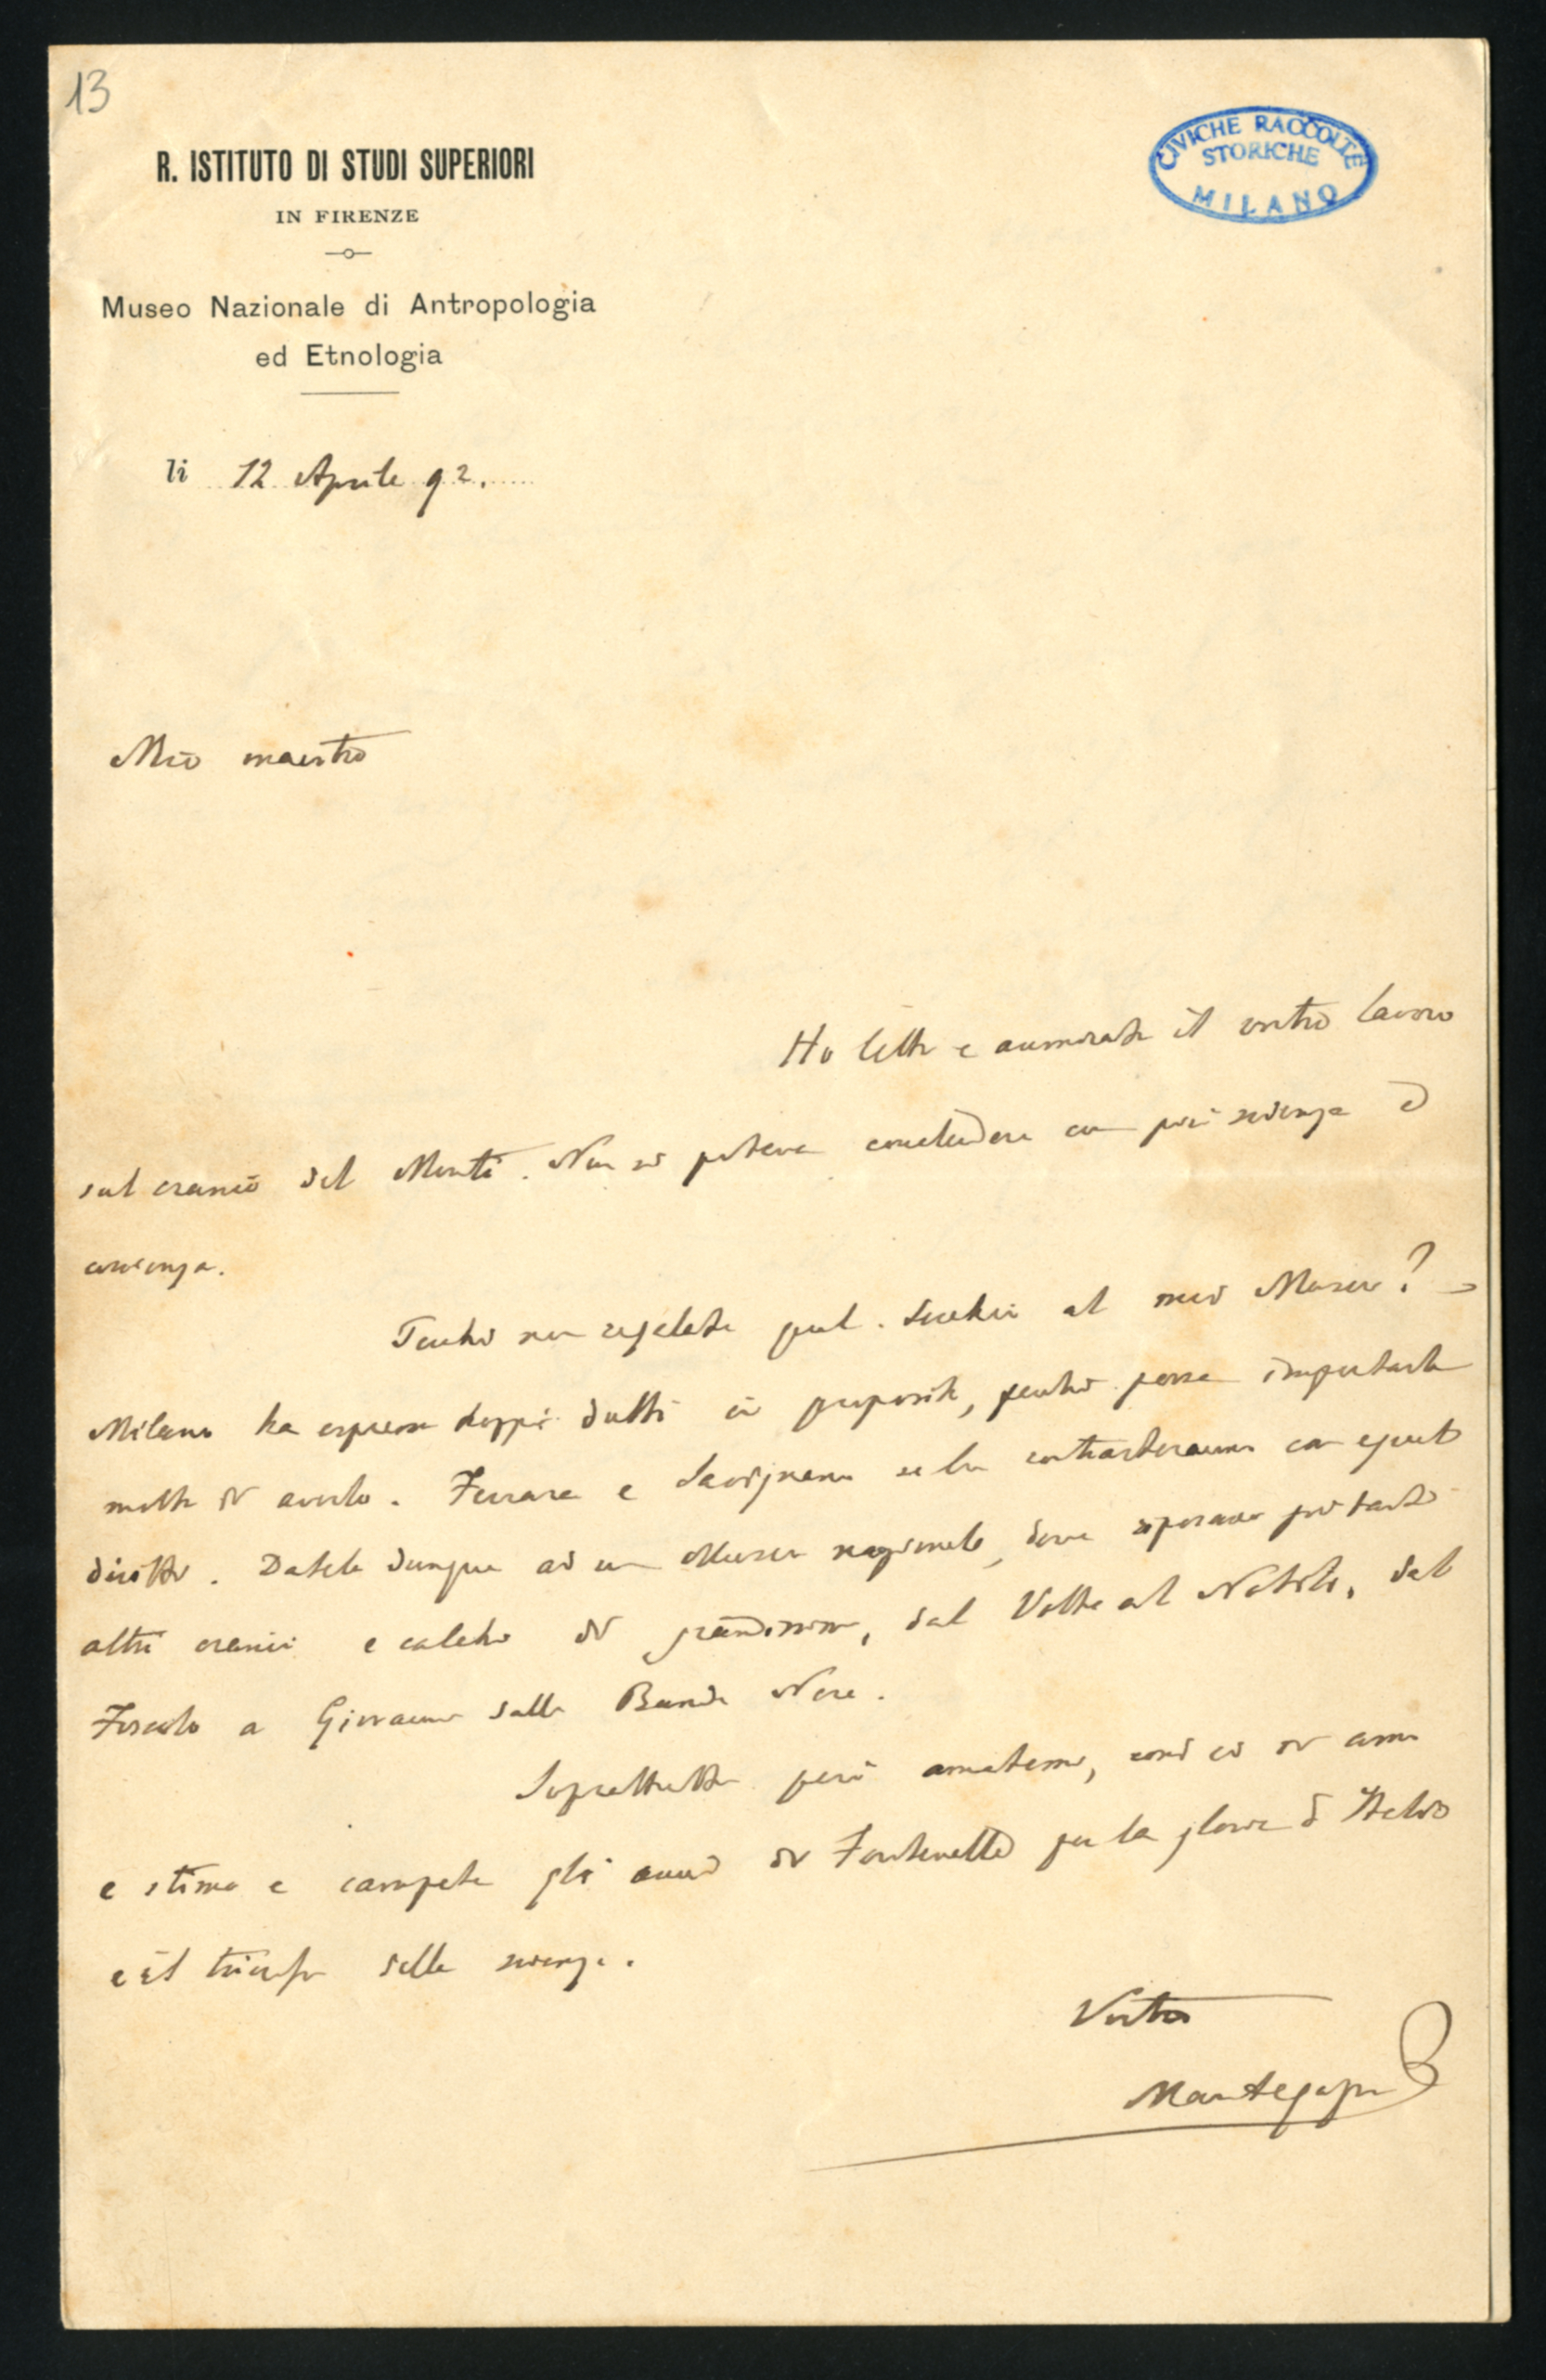 13
R. ISTITUTO DI STUDI SUPERIORI
IN FIRENZE
Museo Nazionale di Antropologia
ed Etnologia
li 12 Aprile 92.
CIVICHE RACCOLTE
STORICHE
MILANO
Mio maestro
Ho letto e ammirato il vostro lavoro
sul cranio del Monti. Non si poteva concludere con più scienza e
coscienza.
Perché non regalate quel al mio Museo? -
Milano ha espresso troppi dubbi in proposito, perché possa importarle
molto di averlo. Ferrara e se lo contrasteranno con egual
diritto. Datelo dunque ad un Museo nazionale, dove riposano già tanti
altri cranii e calchi di grandissimi, dal Volta al Nobili, dal
Foscolo a Giovanni dalle Bande Nere.
Soprattutto però amatemi, com'io vi amo
e stimo e campate gli anni di Fontenelle per la gloria d'Italia
e il trionfo della scienza.
Vostro
Mantegazza